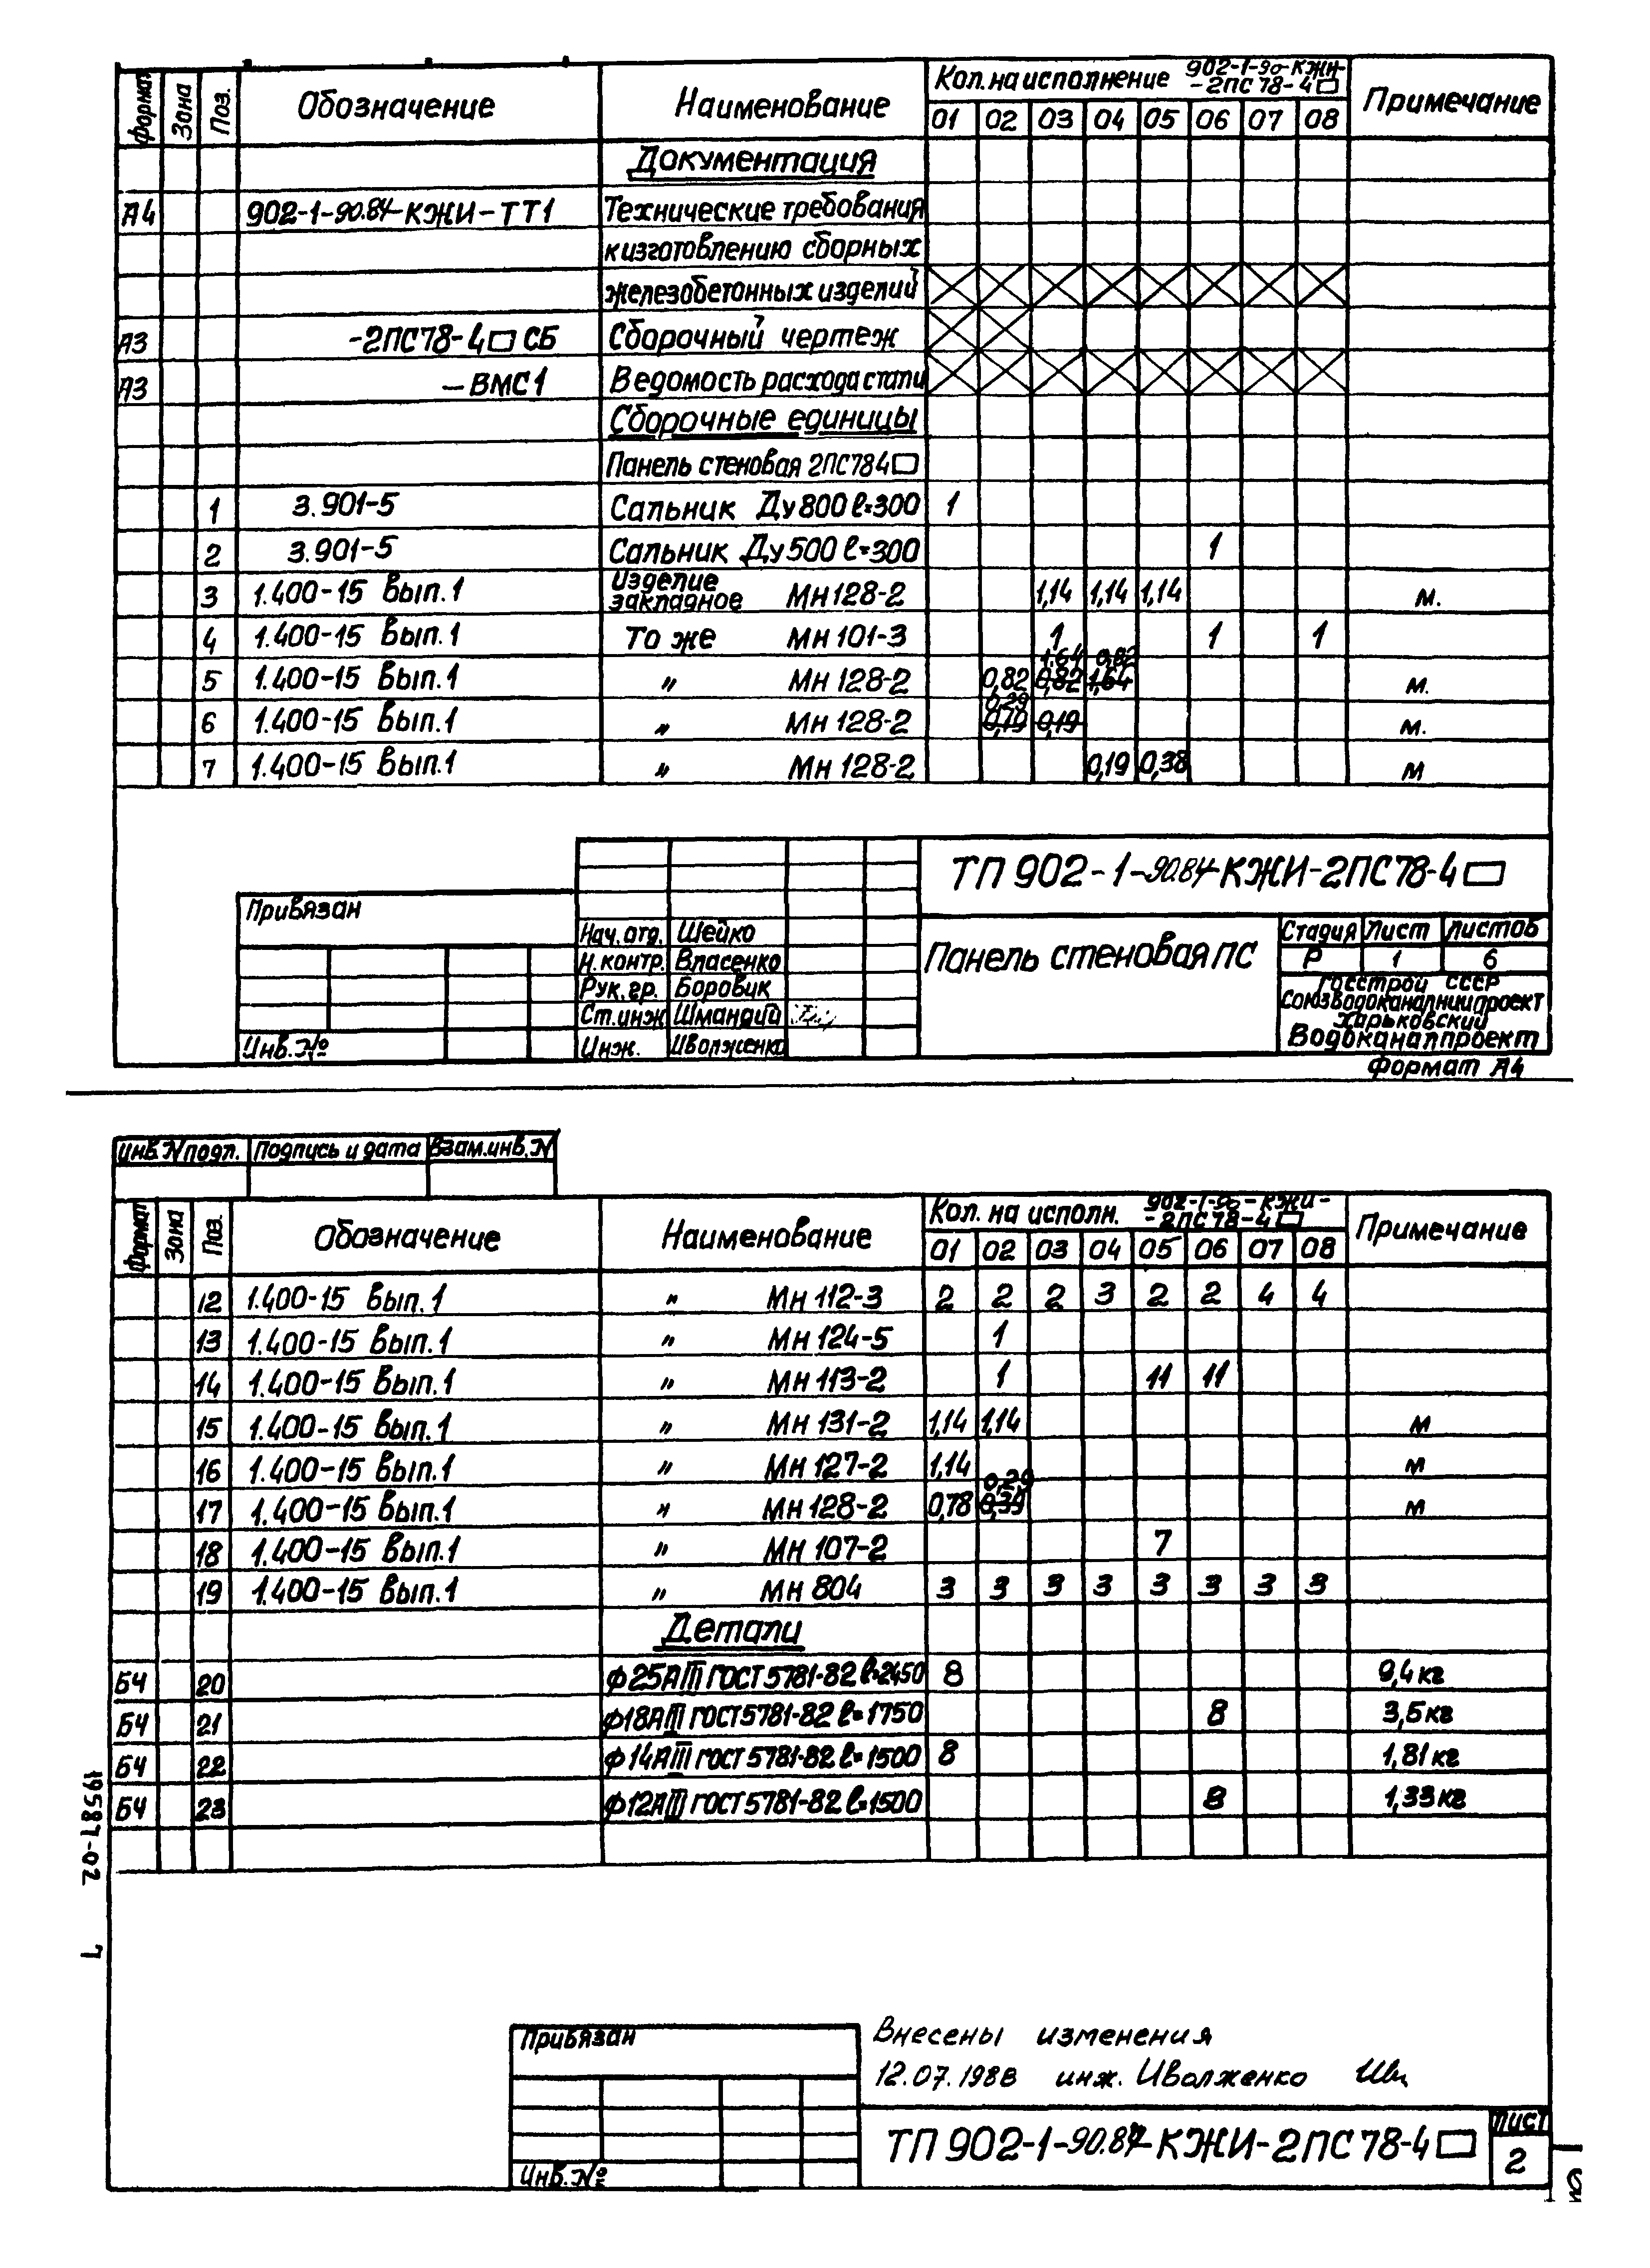 Формат Зона Поз. Обозначение Наименование Кол. на исполнение 902-1-90-КЖИ--2ПС 78-4▭ Примечание
01 02 03 04 05 06 07 08
Документация
А4 902-1-90.87-КЖИ-ТТ1 Технические требования
к изготовлению сборных
железобетонных изделий
А3 -2ПС78-4▭ СБ Сборочный чертеж
А3 -ВМС1 Ведомость расхода стали
Сборочные единицы
Панель стеновая 2ПС784▭
1 3.901-5 Сальник Ду 800 ℓ=300 1
2 3.901-5 Сальник Ду 500 ℓ=300 1
3 1.400-15 Вып.1 Изделие закладное Мн 128-2 1,14 1,14 1,14 м.
4 1.400-15 Вып.1 То же Мн 101-3 1 1 1
1.64 0.82
5 1.400-15 Вып.1 " Мн 128-2 0,82 0,82 1,64 м.
0,29
6 1.400-15 Вып.1 " Мн 128-2 0,19 0,19 м.
7 1.400-15 Вып.1 " Мн 128-2 0,19 0,38 м
ТП 902-1-90.87-КЖИ-2ПС78-4▭
Привязан
Нач. отд. Шейко
Н. контр. Власенко
Рук. гр. Боровик
Ст. инж Шмандий
Инж. Иволженко
Инв. №
Панель стеновая ПС
Стадия Лист Листов
Р 1 6
Госстрой СССР
Союзводоканалниипроект
Харьковский
Водоканалпроект
Формат А4
Инв. N подл. Подпись и дата Взам. инв. N
Формат Зона Поз. Обозначение Наименование Кол. на исполн. 902-1-90-КЖИ--2ПС 78-4▭ Примечание
01 02 03 04 05 06 07 08
12 1.400-15 Вып.1 " Мн 112-3 2 2 2 3 2 2 4 4
13 1.400-15 Вып.1 " Мн 124-5 1
14 1.400-15 Вып.1 " Мн 113-2 1 11 11
15 1.400-15 Вып.1 " Мн 131-2 1,14 1,14 м
16 1.400-15 Вып.1 " Мн 127-2 1,14 м
0,29
17 1.400-15 Вып.1 " Мн 128-2 0,78 0,39 м
18 1.400-15 Вып.1 " Мн 107-2 7
19 1.400-15 Вып.1 " Мн 804 3 3 3 3 3 3 3 3
Детали
БЧ 20 ф25АIII ГОСТ 5781-82 ℓ=2450 8 9,4 кг
БЧ 21 ф18АIII ГОСТ 5781-82 ℓ=1750 8 3,5 кг
БЧ 22 ф14АIII ГОСТ 5781-82 ℓ=1500 8 1,81 кг
БЧ 23 ф12АIII ГОСТ 5781-82 ℓ=1500 8 1,33 кг
19587-02 7
Привязан
Инв. №
Внесены изменения
12.07.1988 инж. Иволженко
ТП 902-1-90.87-КЖИ-2ПС 78-4▭
Лист
2